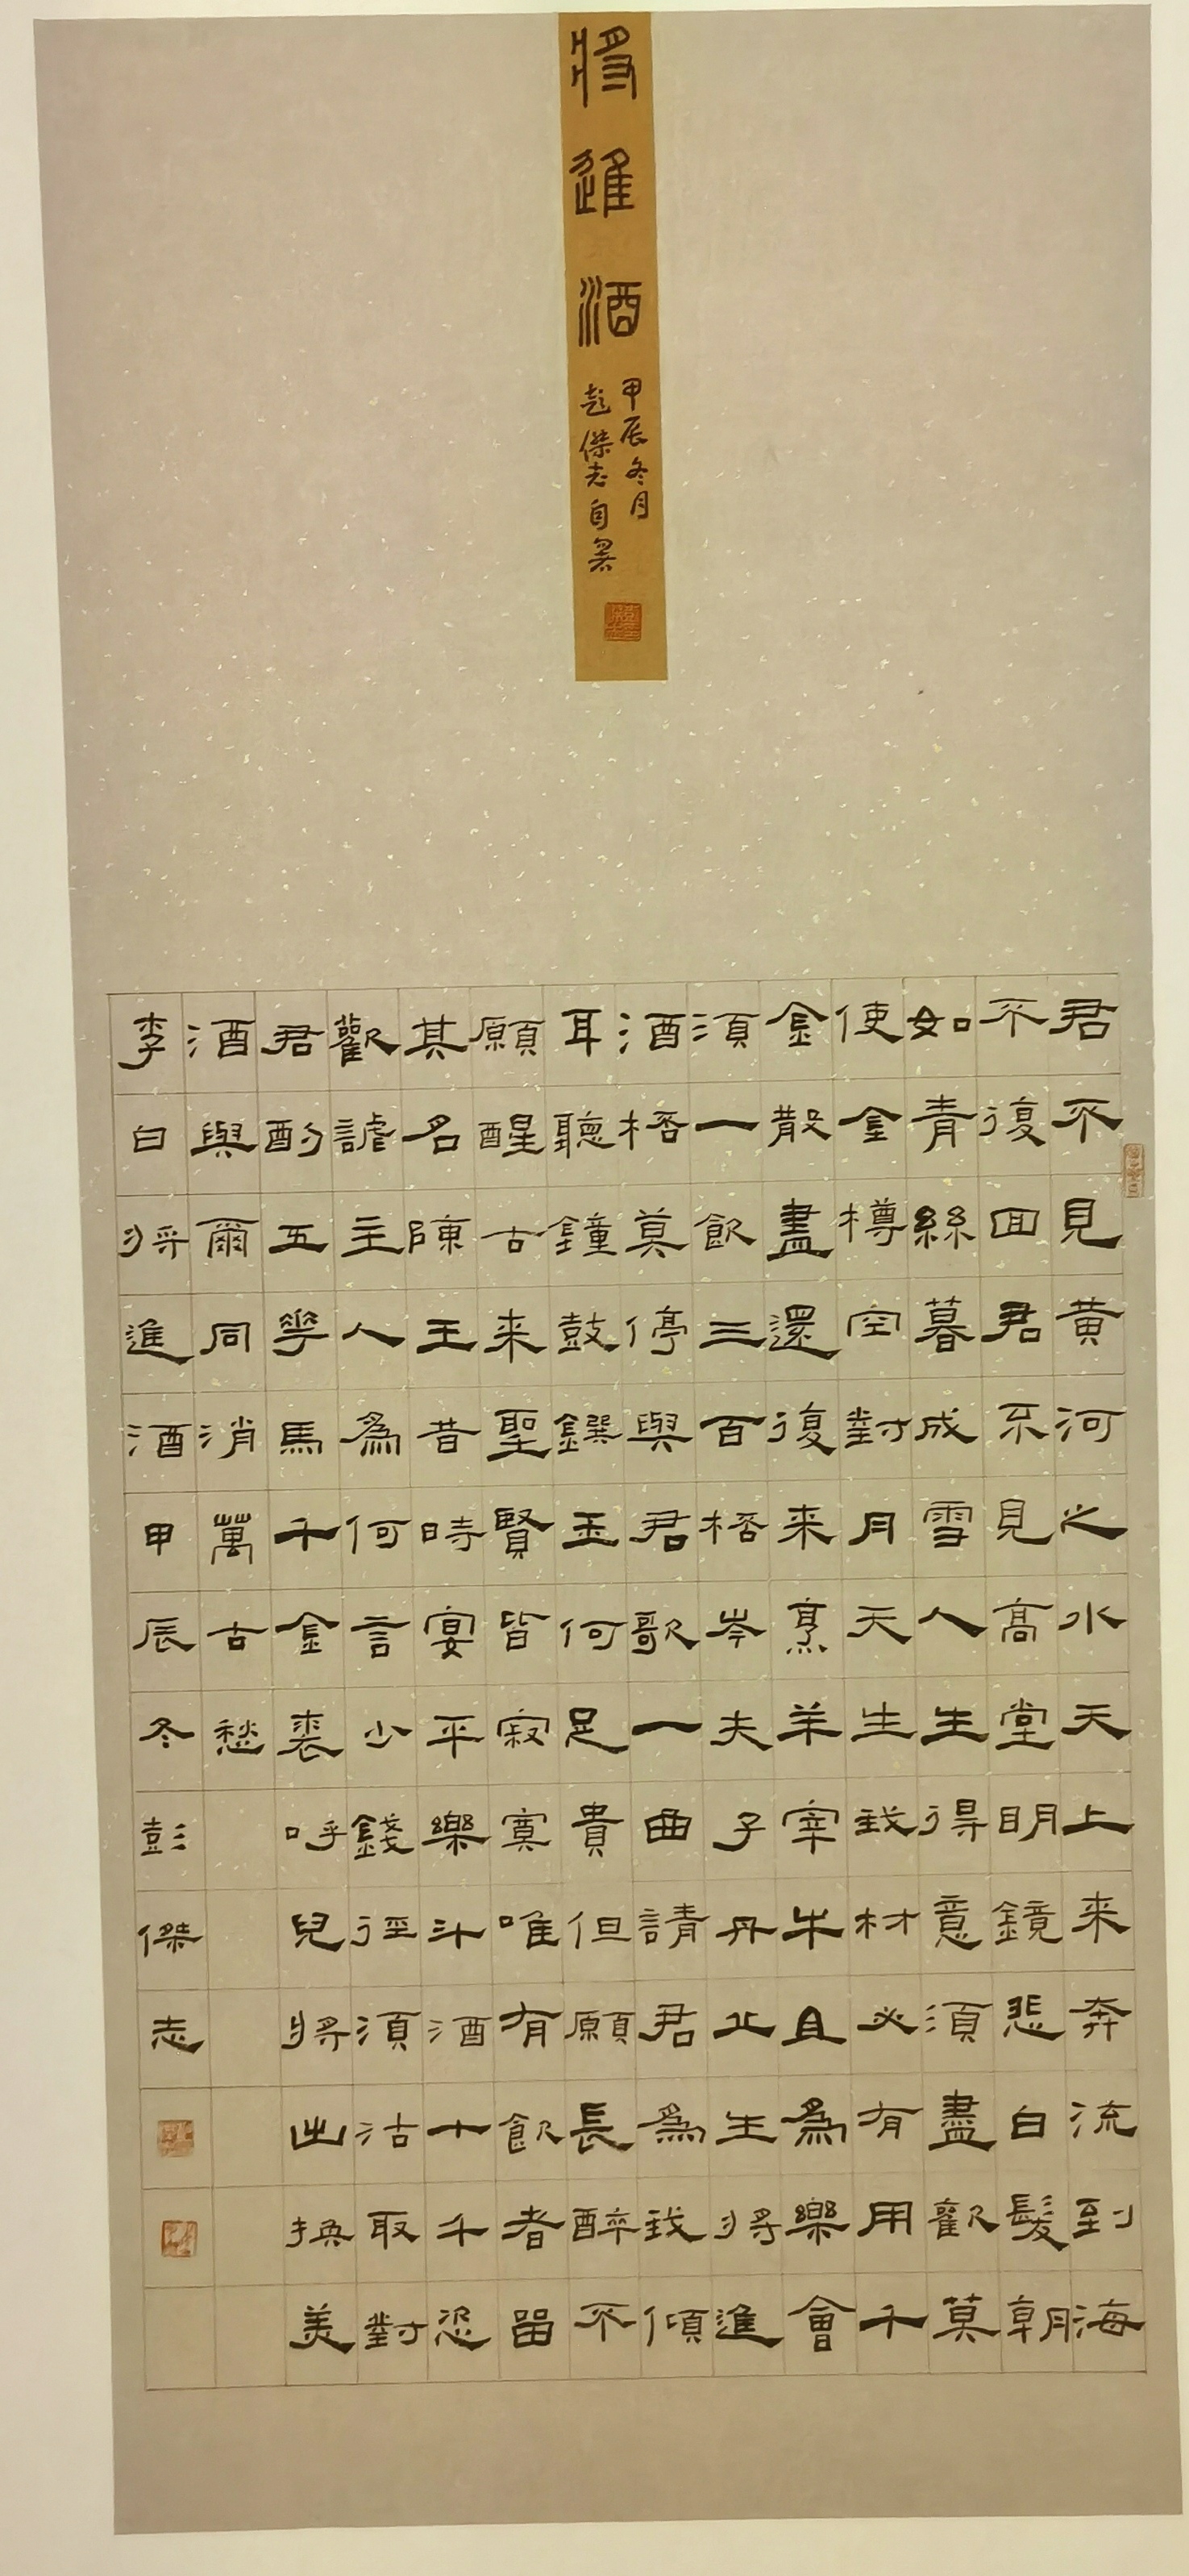 將進酒
甲辰冬月
彭傑志自署
君不見黄河之水天上来奔流到海
不復回君不見高堂明鏡悲白髮朝
如青絲暮成雪人生得意須盡歡莫
使金樽空對月天生我材必有用千
金散盡還復来烹羊宰牛且爲樂會
須一飲三百桮岑夫子丹丘生將進
酒桮莫停與君歌一曲請君爲我傾
耳聽鐘鼓饌玉何足貴但願長醉不
願醒古来聖賢皆寂寞唯有飲者留
其名陳王昔時宴平樂斗酒十千恣
歡謔主人爲何言少錢徑須沽取對
君酌五花馬千金裘呼兒將出換美
酒與爾同消萬古愁
李白將進酒甲辰冬彭傑志